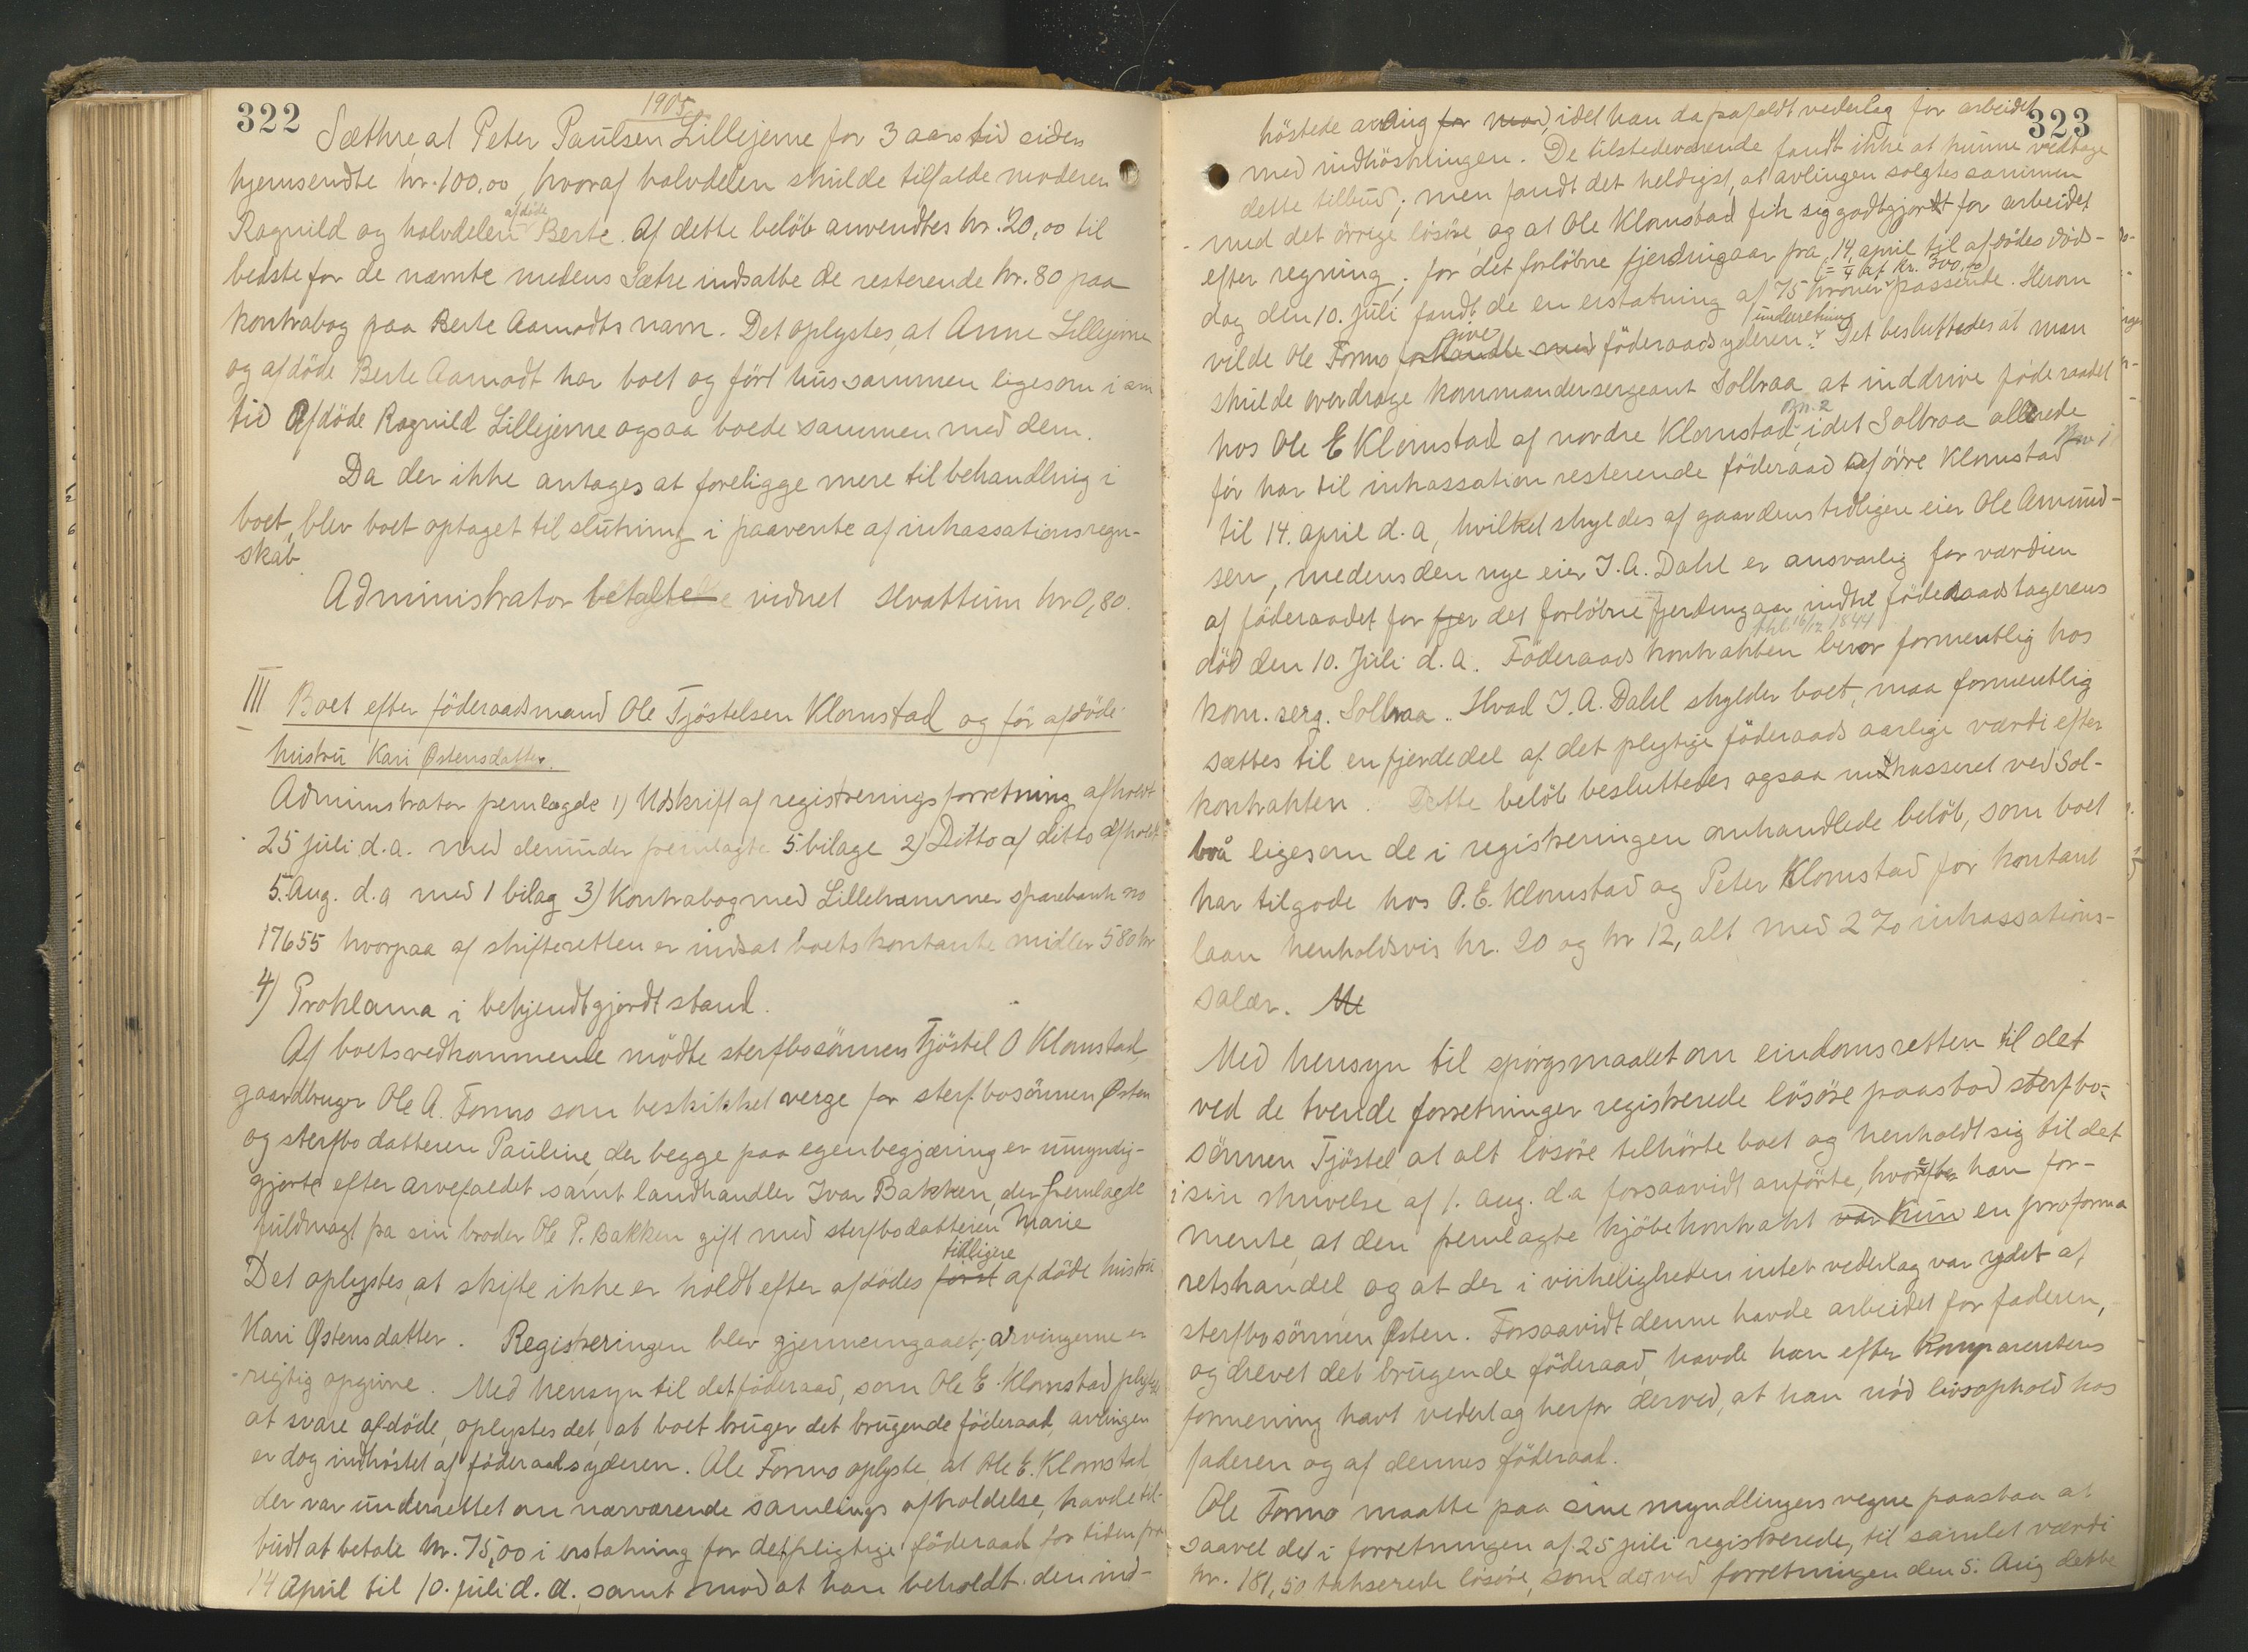 322
1905
Sæthre, at Peter Paulsen Lillejerne for 3 aars tid siden
hjemsendte kr. 100,00, hvoraf halvdelen skulde tilfalde moderen
Ragnild og halvdelen afdöde Berte. Af dette belöb anvendtes kr. 20,00 til
bedste for de nævnte medens Sætre indsatte de resterende kr. 80 paa
kontrabog paa Berte Aamodts navn. Det oplystes, at Anne Lillejerne
og afdöde Berte Aamodt har boet og fört hus sammen ligesom i sin
tid afdöde Ragnild Lillejerne ogsaa boede sammen med dem.
Da der ikke antages at foreligge mere til behandling i
boet, blev boet optaget til slutning i paavente af inkassationsregn-
skab
Administrator betalte vidnet Hvattum kr 0,80.
III Boet efter föderaadsmand Ole Tjöstelsen Klomstad og för afdöde
hustru Kari Østensdatter.
Administrator fremlagde 1) Udskrift af registreringsforretning afholdt
25 juli d.a. med derunder fremlagte 5 bilage 2) Ditto af ditto afholdt
5. Aug. d.a med 1 bilag 3) Kontrabog med Lillehammer sparebank no
17655 hvorpaa af skifteretten er indsat boets kontante midler 580 kr
4) Proklama i bekjendtgjordt stand.
Af boets vedkommende mödte sterfbosönnen Tjöstel O Klomstad
gaardbruger Ole A. Formo som beskikket verge for sterfbosönnen Østen
og sterfbodatteren Pauline, der begge paa egen begjæring er umyndig-
gjorte efter arvefaldet samt landhandler Ivar Bakken, der fremlagde
fuldmagt fra sin broder Ole P. Bakken gift med sterfbodatteren Marie
Det oplystes, at skifte ikke er holdt efter afdödes först tidligere afdöde hustru
Kari Østensdatter. Registreringen blev gjennemgaaet; arvingerne er
rigtig opgivne. Med hensyn til det föderaad, som Ole E. Klomstad pligtet
at svare afdöde, oplystes det, at boet bruger det brugende föderaad, avlingen
er dog indhöstet af föderaadsyderen. Ole Formo oplyste, at Ole E. Klomstad
der var underrettet om nærværende samlings afholdelse, havde til-
budt at betale kr. 75,00 i erstatning for det pligtige föderaad for tiden fra
14 April til 10. juli d.a. samt mod at han beholdt den ind-
323
höstede avling for mod, idet han da frafaldt vederlag for arbeidet
med indhöstningen. De tilstedeværende fandt ikke at kunne vedtage
dette tilbud; men fandt det heldigst, at avlingen solgtes sammen
med det övrige lösöre, og at Ole Klomstad fik sig godtgjordt for arbeidet
efter regning; for det forlöbne fjerdingaar fra 14 april til afdödes döds-
dag den 10. juli fandt de en erstatning af 75 kroner (= 1/4 af kr. 300,00) passende. Herom
vilde Ole Formo forhandle med give föderaadsyderen underretning. Det besluttedes at man
skulde overdrage kommandersergeant Solbraa at inddrive föderaadet
hos Ole E Klomstad af nordre Klomstad, Bn. 2 idet Solbraa allerede
för har til inkassation resterende föderaad af övre Klomstad Bn 1
til 14. april d.a, hvilket skyldes af gaardens tidligere eier Ole Amund-
sen, medens den nye eier J.A. Dahl er ansvarlig for værdien
af föderaadet for fjer det forlöbne fjerdingaar indtil föderaadstagerens
död den 10. Juli d.a. Föderaadskontrakten thl. 16/12 1844 beror formentlig hos
kom. serg. Solbraa. Hvad J.A. Dahl skylder boet, maa formentlig
sættes til en fjerdedel af det pligtige föderaads aarlige værdi efter
kontrakten. Dette belöb besluttedes ogsaa indkasseret ved Sol-
braa ligesom de i registreringen omhandlede belöb, som boet
har tilgode hos O.E. Klomstad og Peter Klomstad for kontant
laan henholdsvis kr. 20 og kr 12, alt med 2 % inkassations-
salær. Me
Med hensyn til spörgsmaalet om eindomsretten til det
ved de tvende forretninger registrerede lösöre paastod sterfbo-
sönnen Tjöstel, at alt lösöre tilhörte boet og henholdt sig til det
i sin skrivelse af 1. aug. d.a forsaavidt anförte, hvorefter han for-
mente, at den fremlagte kjöbekontrakt var kun en proforma
retshandel og at der i virkeligheden intet vederlag var ydet af
sterfbosönnen Østen. Forsaavidt denne havde arbeidet for faderen,
og drevet det brugende föderaad, havde han efter komparentens
formening havt vederlag herfor derved, at han nöd livsophold hos
faderen og af dennes föderaad.
Ole Formo maatte paa sine myndlingers vegne paastaa at
saavel det i forretningen af 25 juli registrerede, til samlet værdi
kr. 181,50 takserede lösöre, som det ved forretningen den 5. Aug dette